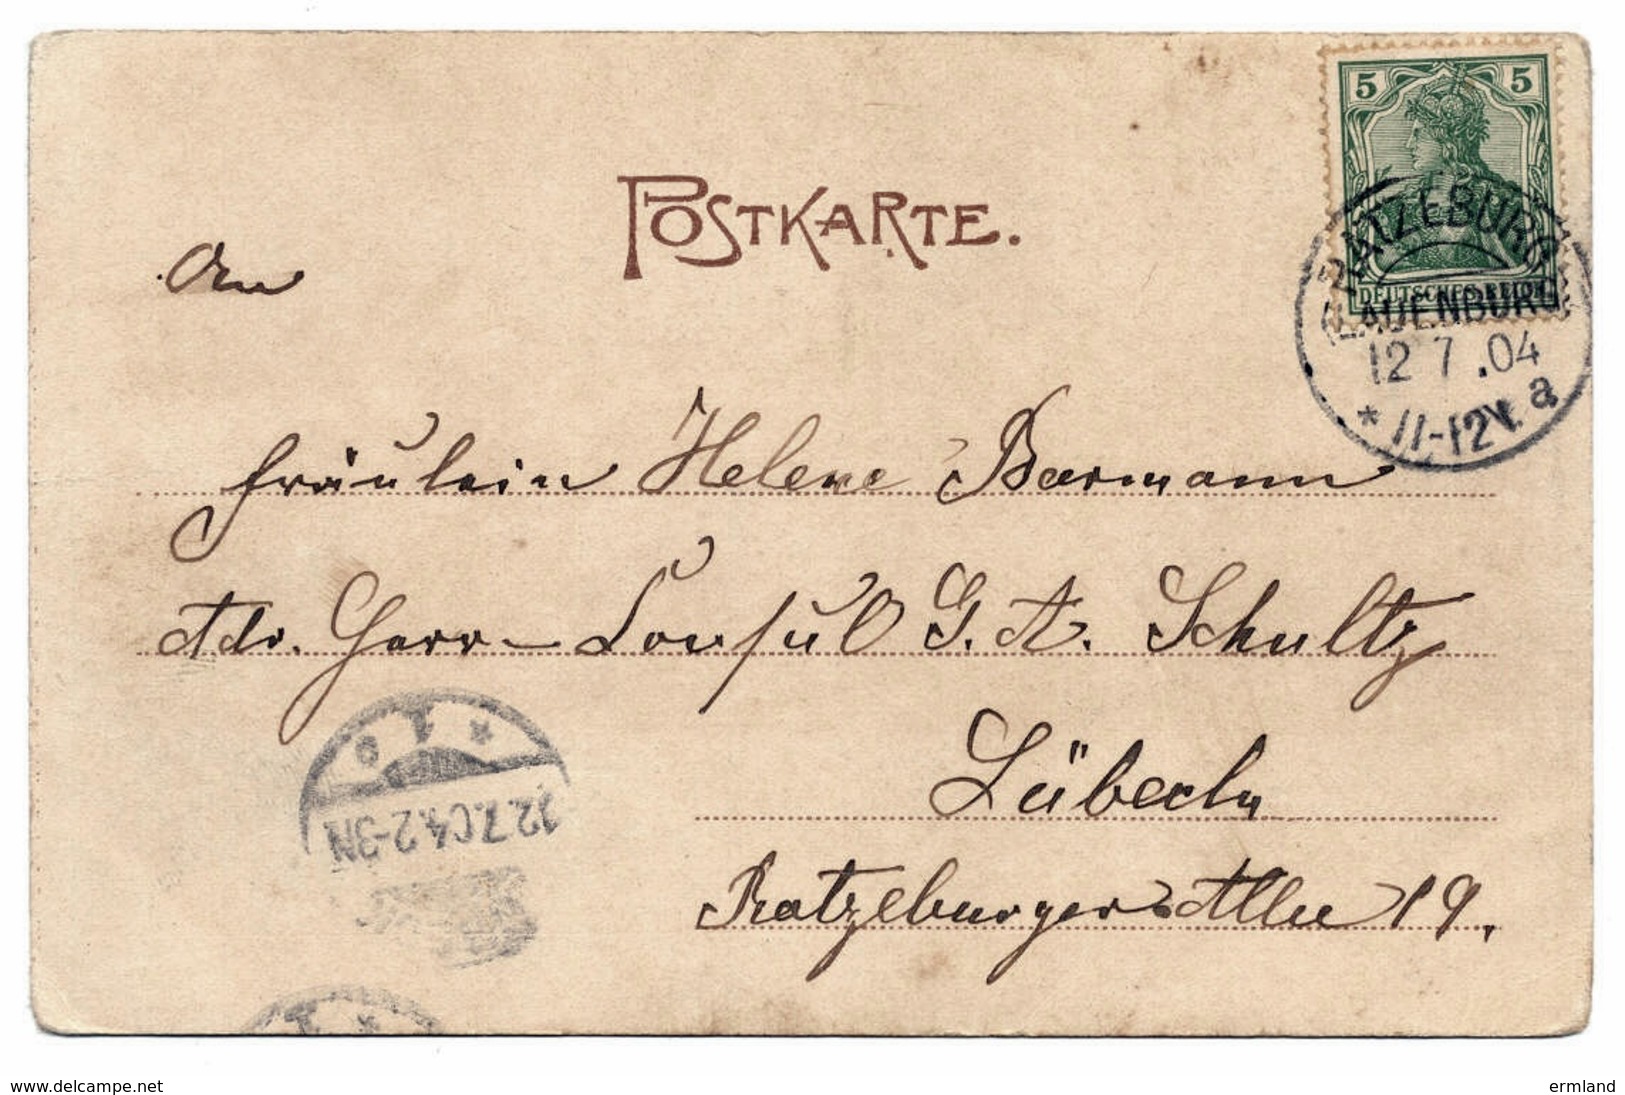 5 5
DEUTSCHES REICH
RATZEBURG
(LAUENBURG)
12 7 .04
* 11-12V. a
POSTKARTE.
An
Fräulein Helene Baermann
Adr. Herrn Consul G. A. Schultz
Lübeck
Ratzeburger Allee 19.
* 1 c
12.7.04. 2-3N
* 1
www.delcampe.net
ermland